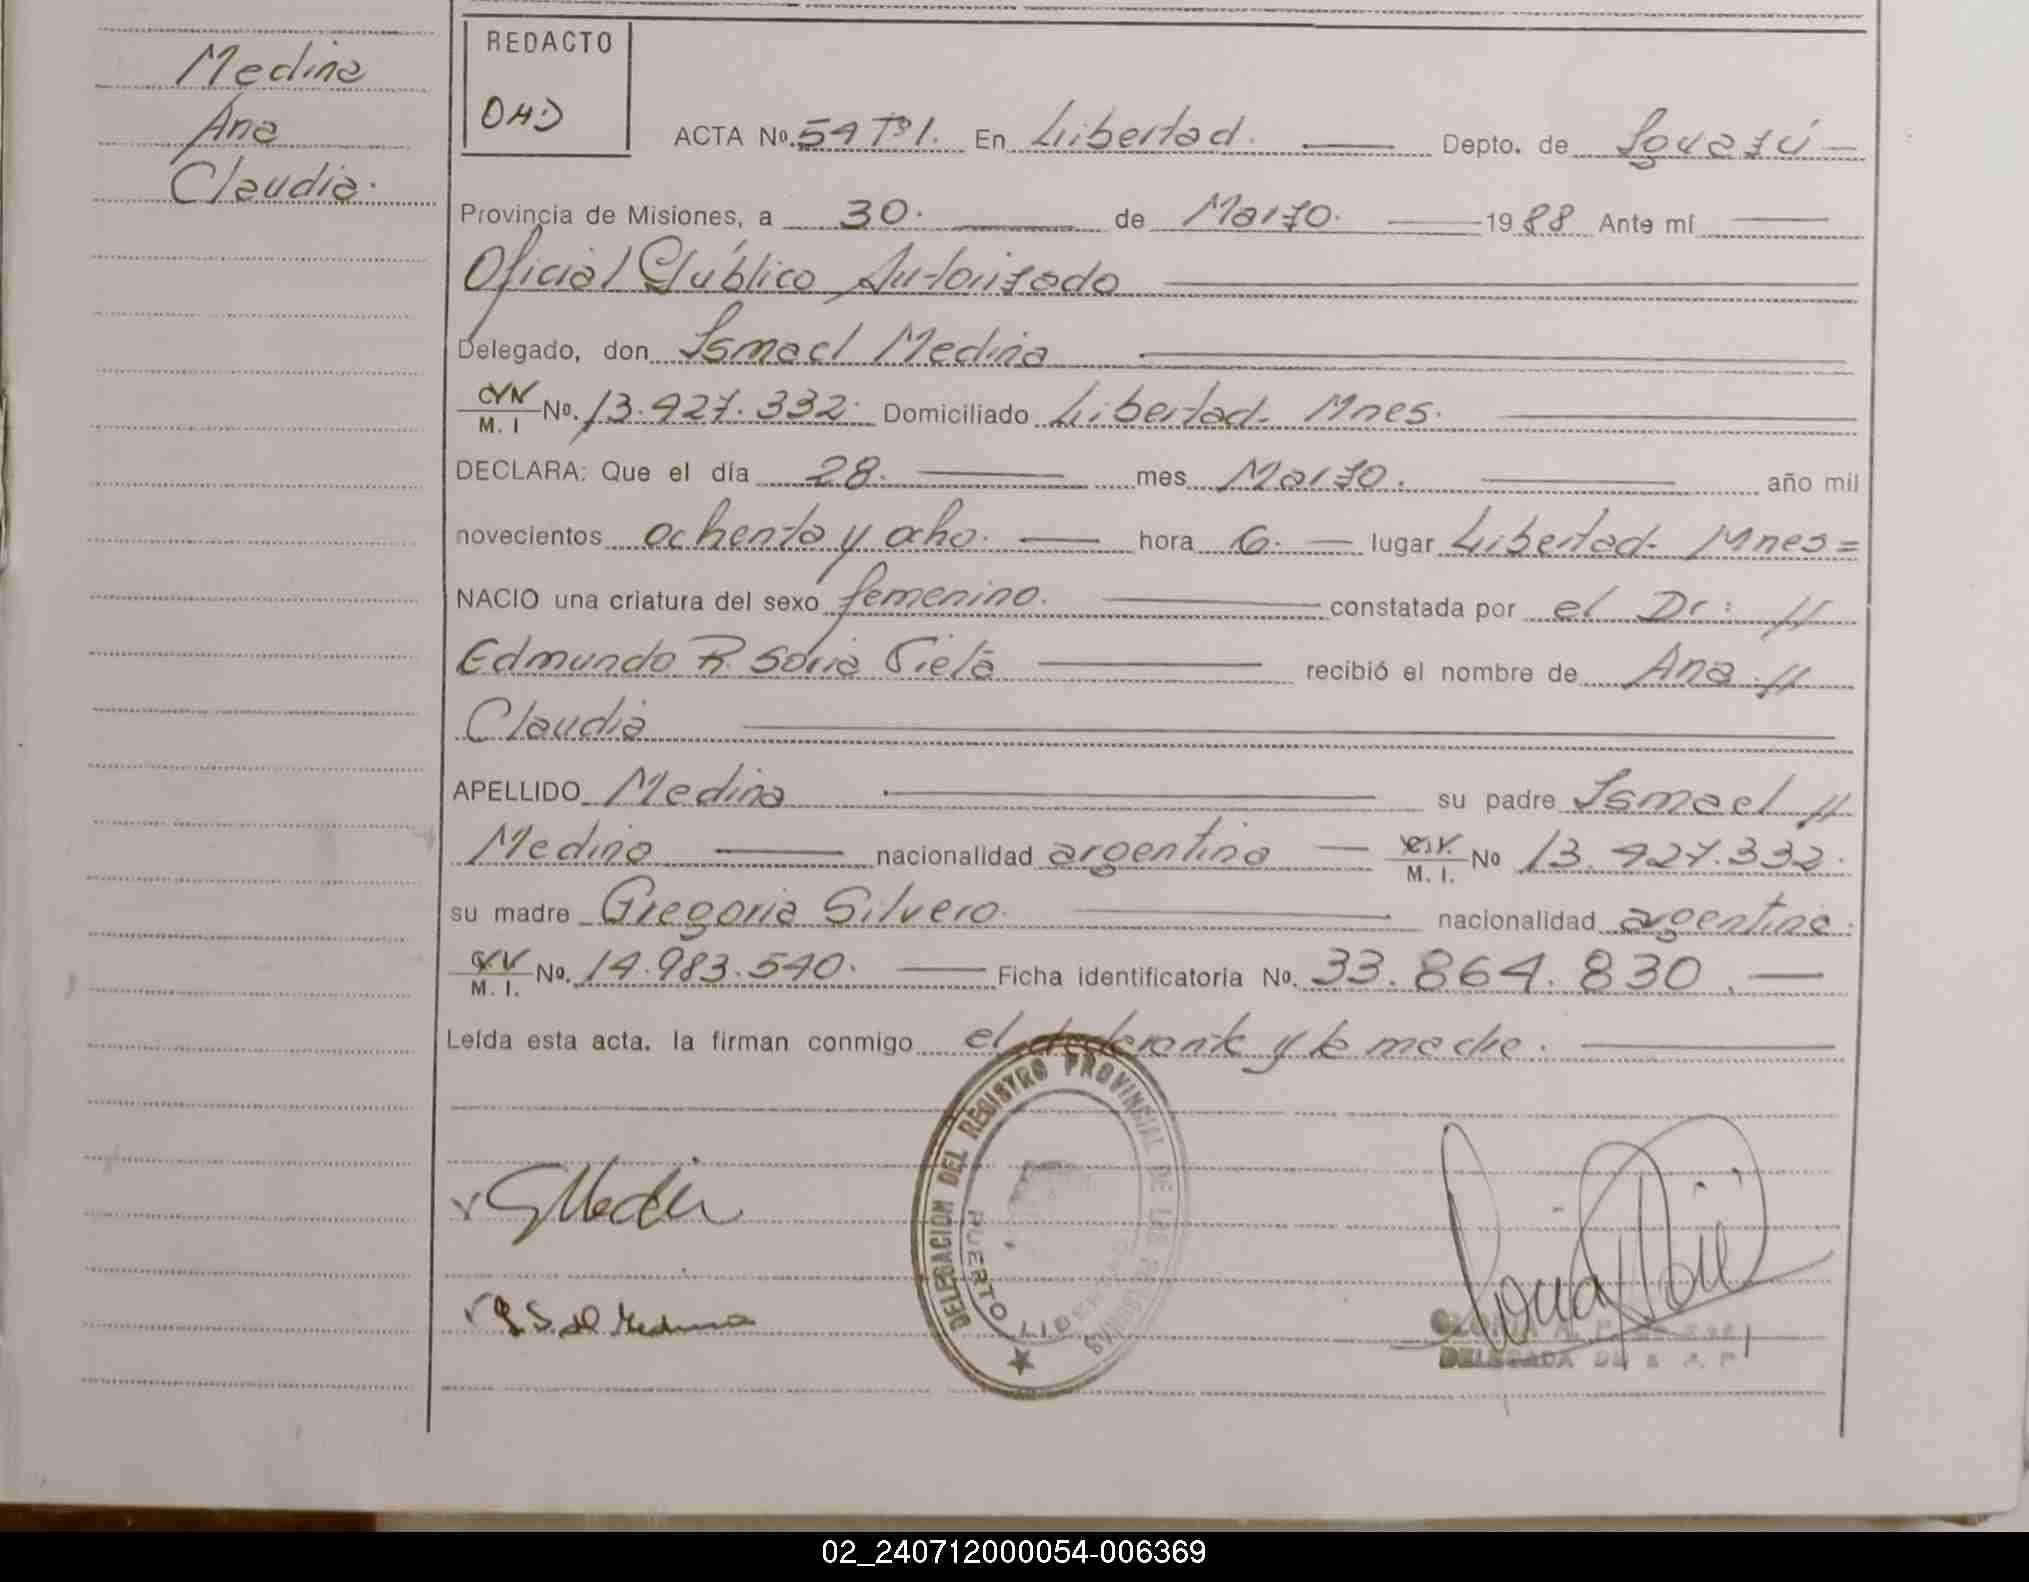 Medina
Ana
Claudia.
REDACTO
OHD
ACTA Nº. 54 Tº 1. En Libertad. Depto. de Iguazú
Provincia de Misiones, a 30. de Marzo. 1988 Ante mí
Oficial Público Autorizado
Delegado, don Ismael Medina
M. I Nº. 13.927.332. Domiciliado Libertad- Mnes.
DECLARA: Que el día 28. mes Marzo. año mil
novecientos ochenta y ocho. hora 6. lugar Libertad- Mnes=
NACIO una criatura del sexo femenino. constatada por el Dr: //
Edmundo R. Soria Vietā recibió el nombre de Ana //
Claudia
APELLIDO Medina su padre Ismael //
Medina nacionalidad argentina C.V. M. I. Nº 13.927.332.
su madre Gregoria Silvero. nacionalidad argentina.
M. I. Nº. 14.983.540. Ficha identificatoria Nº. 33.864.830.
Leída esta acta. la firman conmigo el declarante y la madre.
DELEGACION DEL REGISTRO PROVINCIAL DE LAS PERSONAS
PUERTO LIBERTAD
G S de Medina
GLORIA A.
DELEGADA DE R. P. P.
02_240712000054-006369